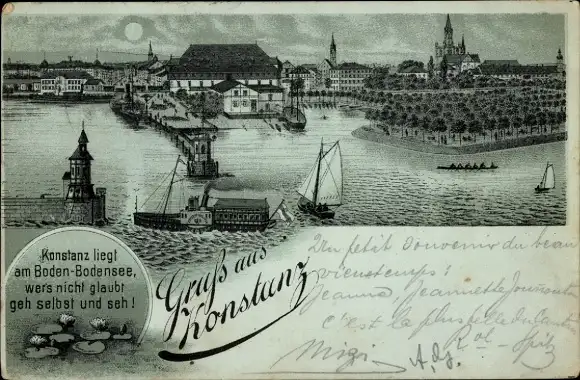 Konstanz liegt
am Boden-Bodensee,
wer's nicht glaubt
geh selbst und seh!
Gruß aus
Konstanz
Un petit souvenir du beau
vieux temps!
Jeanne, Jeannette
c'est la plus belle du